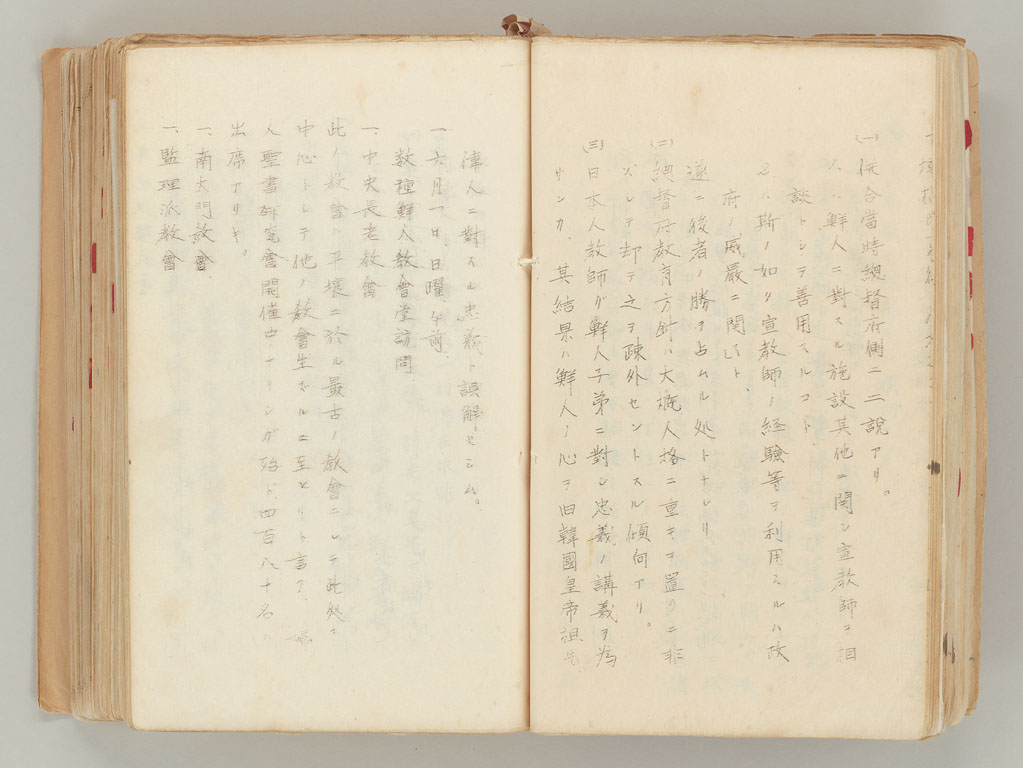 (一) 併合當時總督府側ニ二説アリ。
1、鮮人ニ對スル施設其他ニ関シ宣教師ヲ相
談トシテ善用スルコト、
2、ハ斯ノ如ク宣教師ノ経験等ヲ利用スルハ政
府ノ威厳ニ関スト、
遂ニ後者ノ勝ヲ占ムル処トナレリ
(二) 總督府教育方針ハ大概人格ニ重キヲ置クニ非
ズシテ却テ之ヲ疎外セントスル傾向アリ。
(三) 日本人教師ガ鮮人子弟ニ對シ忠義ノ講義ヲ為
サンカ、其結果ハ鮮人ノ心ヲ旧韓國皇帝祖先
偉人ニ對スル忠義ト誤解セシム。
一、六月一日、日曜、午前、
数種鮮人教會堂訪問
一、中央長老教會
此ノ教會ハ平壌ニ於ル最古ノ教會ニシテ此処ヲ
中心トシテ他ノ教會生ズルニ至レリト言フ、婦
人聖書研究會開催中ナリシガ殆ド四百八十名ノ
出席アリキ。
一、南大門教會
一、監理派教會